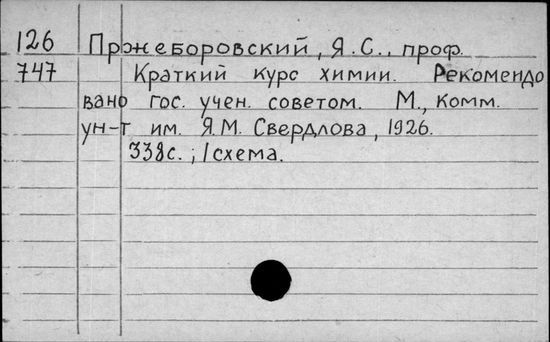 126 Пржеборовский, Я.С., проф.
747 Краткий курс химии. Рекомендо
вано гос. учен. советом. М., Комм.
ун-т им. Я.М. Свердлова, 1926.
338с.; 1 схема.